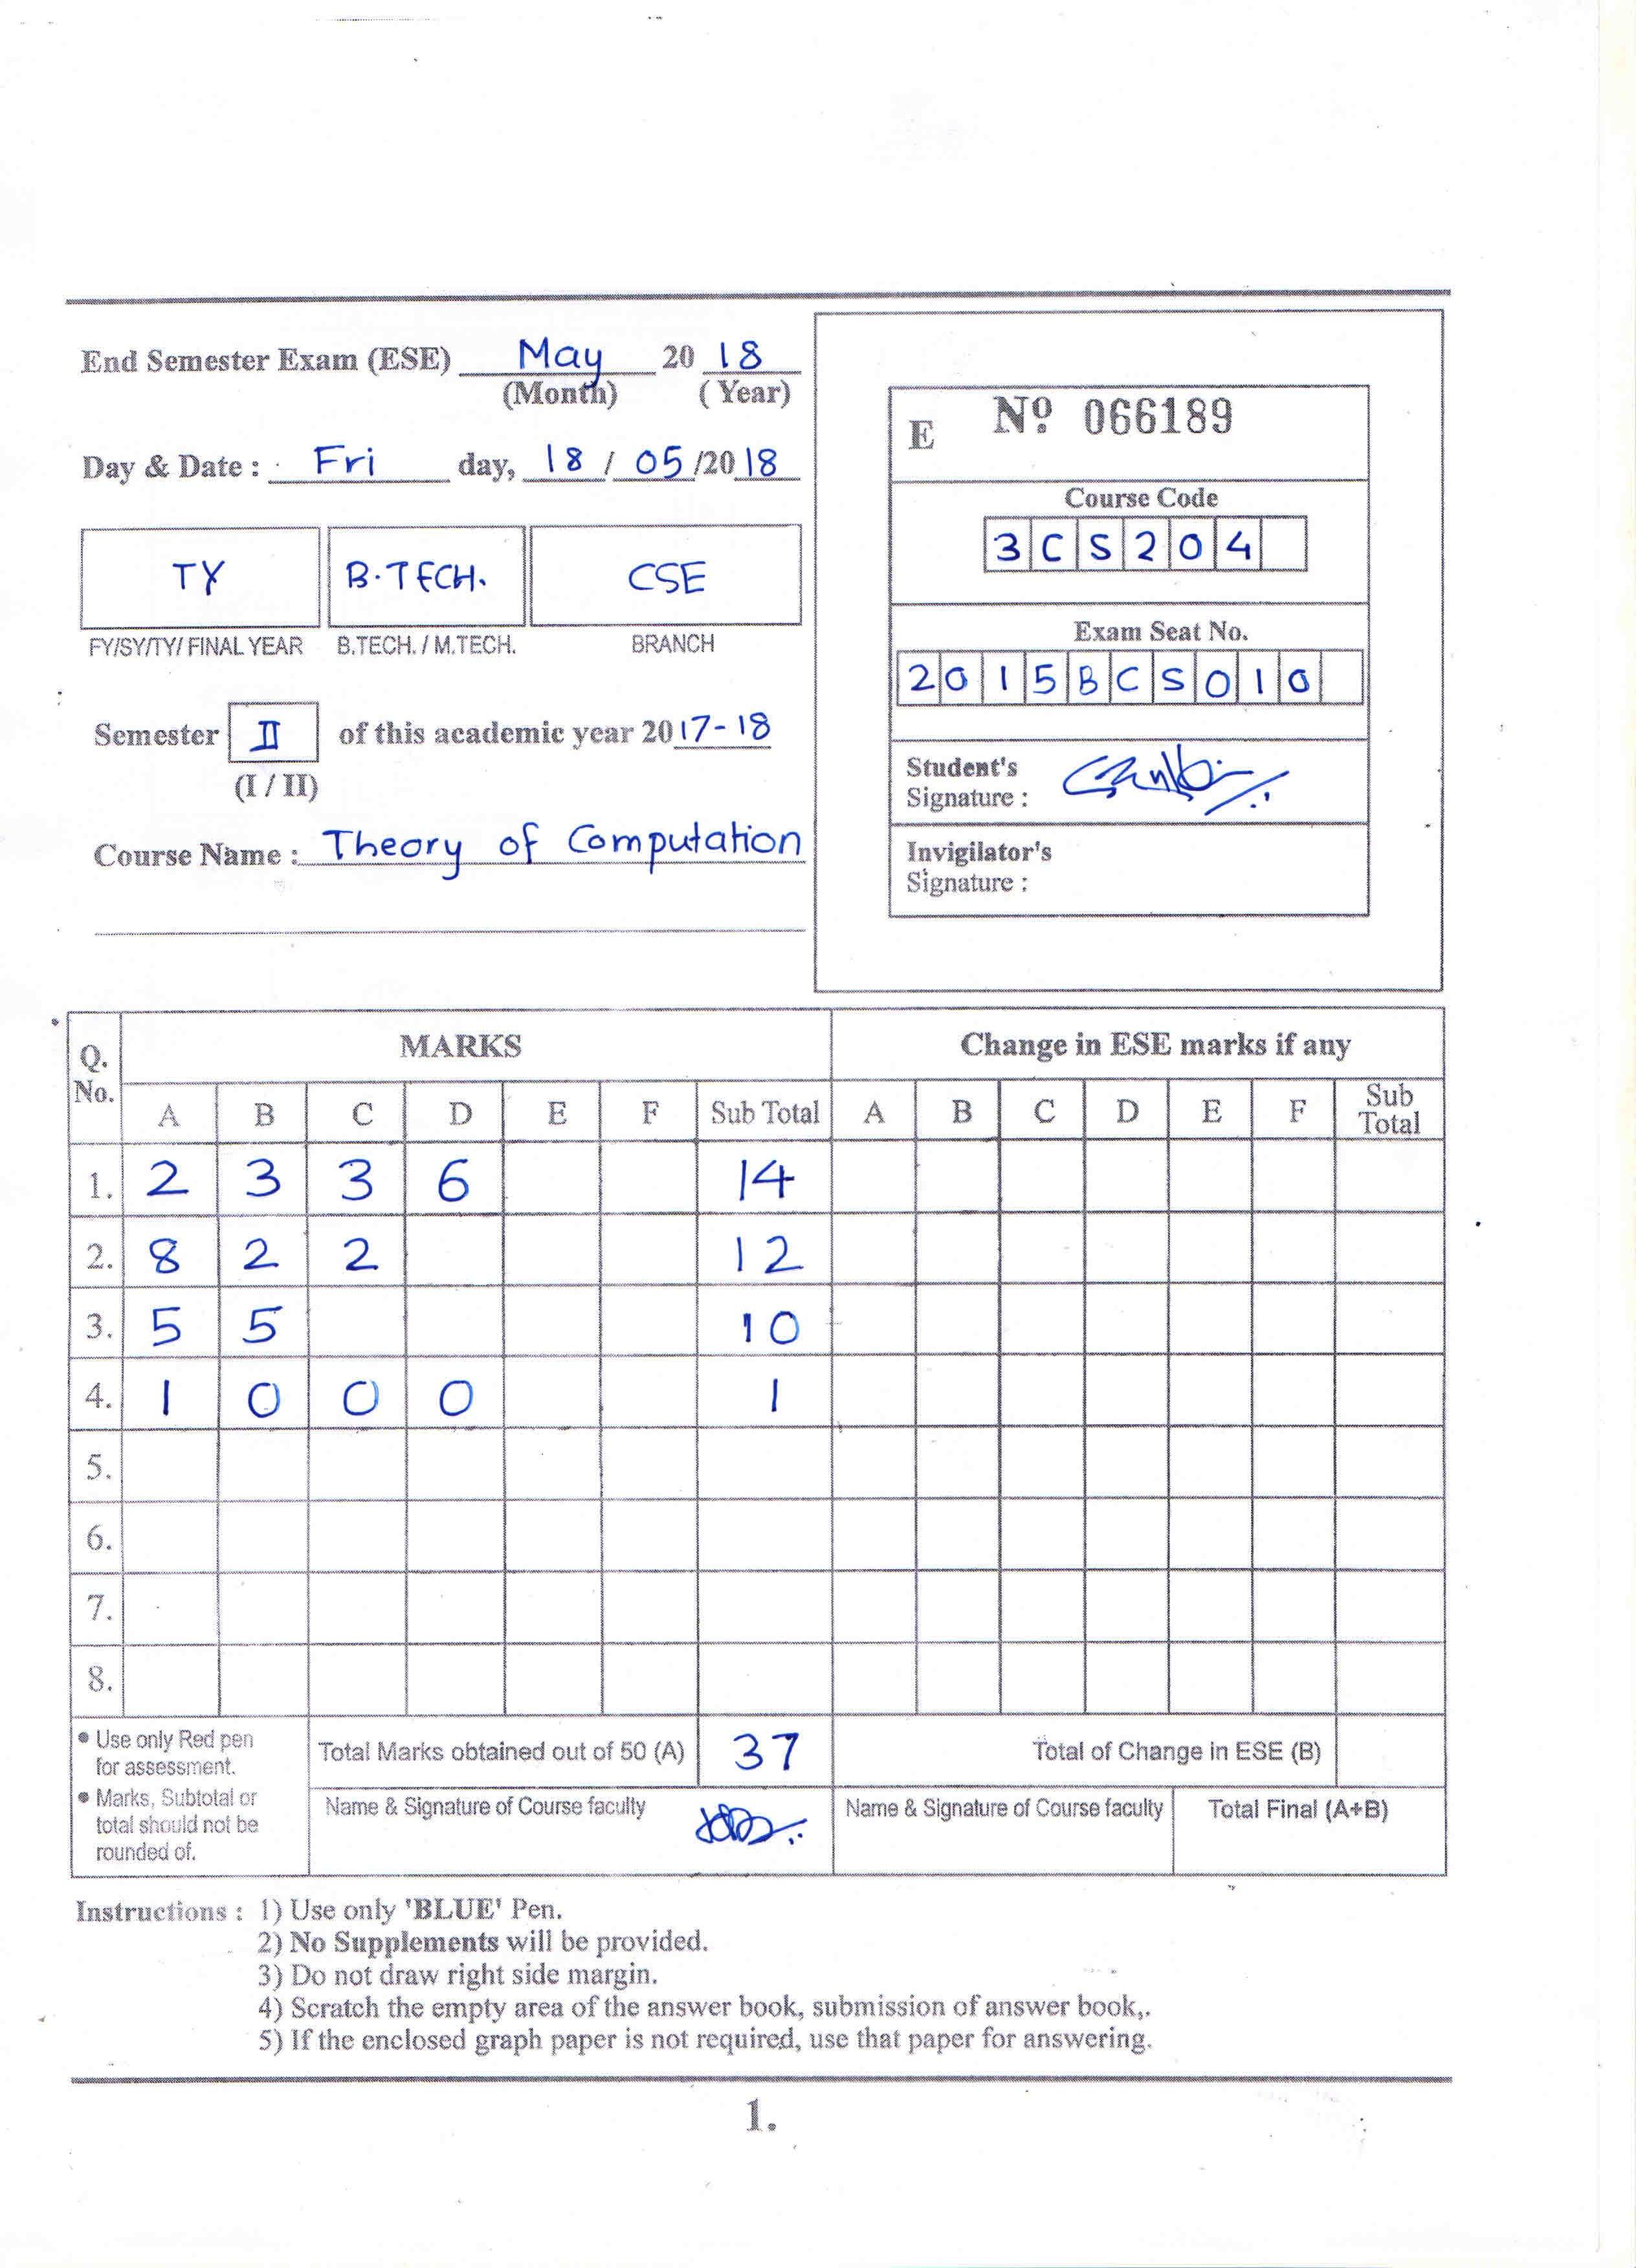 End Semester Exam (ESE) May 20 18
(Month) (Year)
Day & Date : Fri day, 18 / 05 /20 18
TY B.TECH. CSE
FY/SY/TY/ FINAL YEAR B.TECH. / M.TECH. BRANCH
Semester II of this academic year 20 17-18
(I / II)
Course Name : Theory of Computation
E Nº 066189
Course Code
3CS204
Exam Seat No.
2015BCS010
Student's
Signature :
Invigilator's
Signature :
Q. No. MARKS Change in ESE marks if any
A B C D E F Sub Total A B C D E F Sub Total
1. 2 3 3 6 14
2. 8 2 2 12
3. 5 5 10
4. 1 0 0 0 1
5.
6.
7.
8.
• Use only Red pen
for assessment.
• Marks, Subtotal or
total should not be
rounded of.
Total Marks obtained out of 50 (A) 37 Total of Change in ESE (B)
Name & Signature of Course faculty Name & Signature of Course faculty Total Final (A+B)
Instructions : 1) Use only 'BLUE' Pen.
2) No Supplements will be provided.
3) Do not draw right side margin.
4) Scratch the empty area of the answer book, submission of answer book,.
5) If the enclosed graph paper is not required, use that paper for answering.
1.